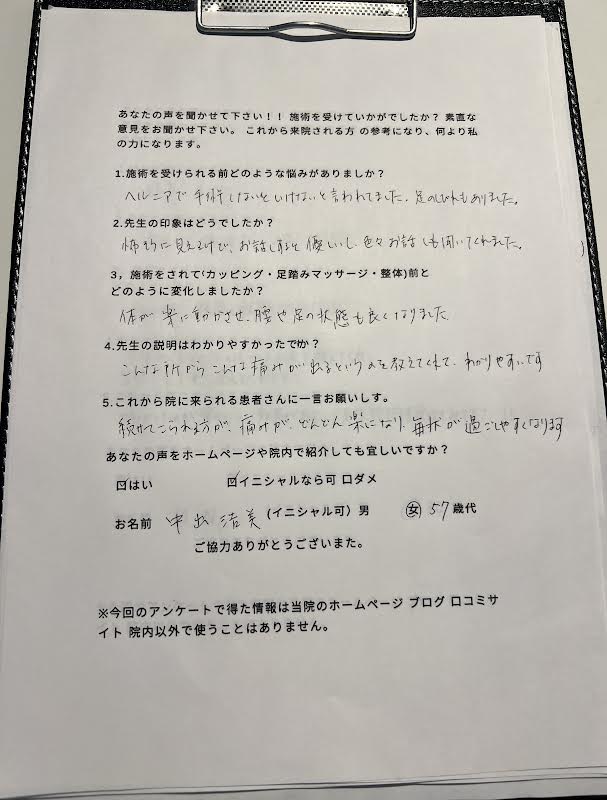 あなたの声を聞かせて下さい！！ 施術を受けていかがでしたか？ 素直な
意見をお聞かせ下さい。 これから来院される方 の参考になり、何より私
の力になります。
1.施術を受けられる前どのような悩みがありましか？
ヘルニアで手術しないといけないと言われてました。足のしびれもありました。
2.先生の印象はどうでしたか？
怖そうに見えるけど、お話しすると優しいし、色々お話しも聞いてくれました。
3，施術をされて(カッピング・足踏みマッサージ・整体)前と
どのように変化しましたか？
体が楽に動かせ、腰や足の状態も良くなりました。
4.先生の説明はわかりやすかったでか？
こんな所からこんな痛みが出るというのを教えてくれて、わかりやすいです
5.これから院に来られる患者さんに一言お願いしす。
続けてこられる方が、痛みが、どんどん楽になり、毎日が過ごしやすくなります
あなたの声をホームページや院内で紹介しても宜しいですか？
☑はい ☑イニシャルなら可 口ダメ
お名前 中出 浩美 (イニシャル可) 男 女 57歳代
ご協力ありがとうございまた。
※今回のアンケートで得た情報は当院のホームページ ブログ 口コミサ
イト 院内以外で使うことはありません。